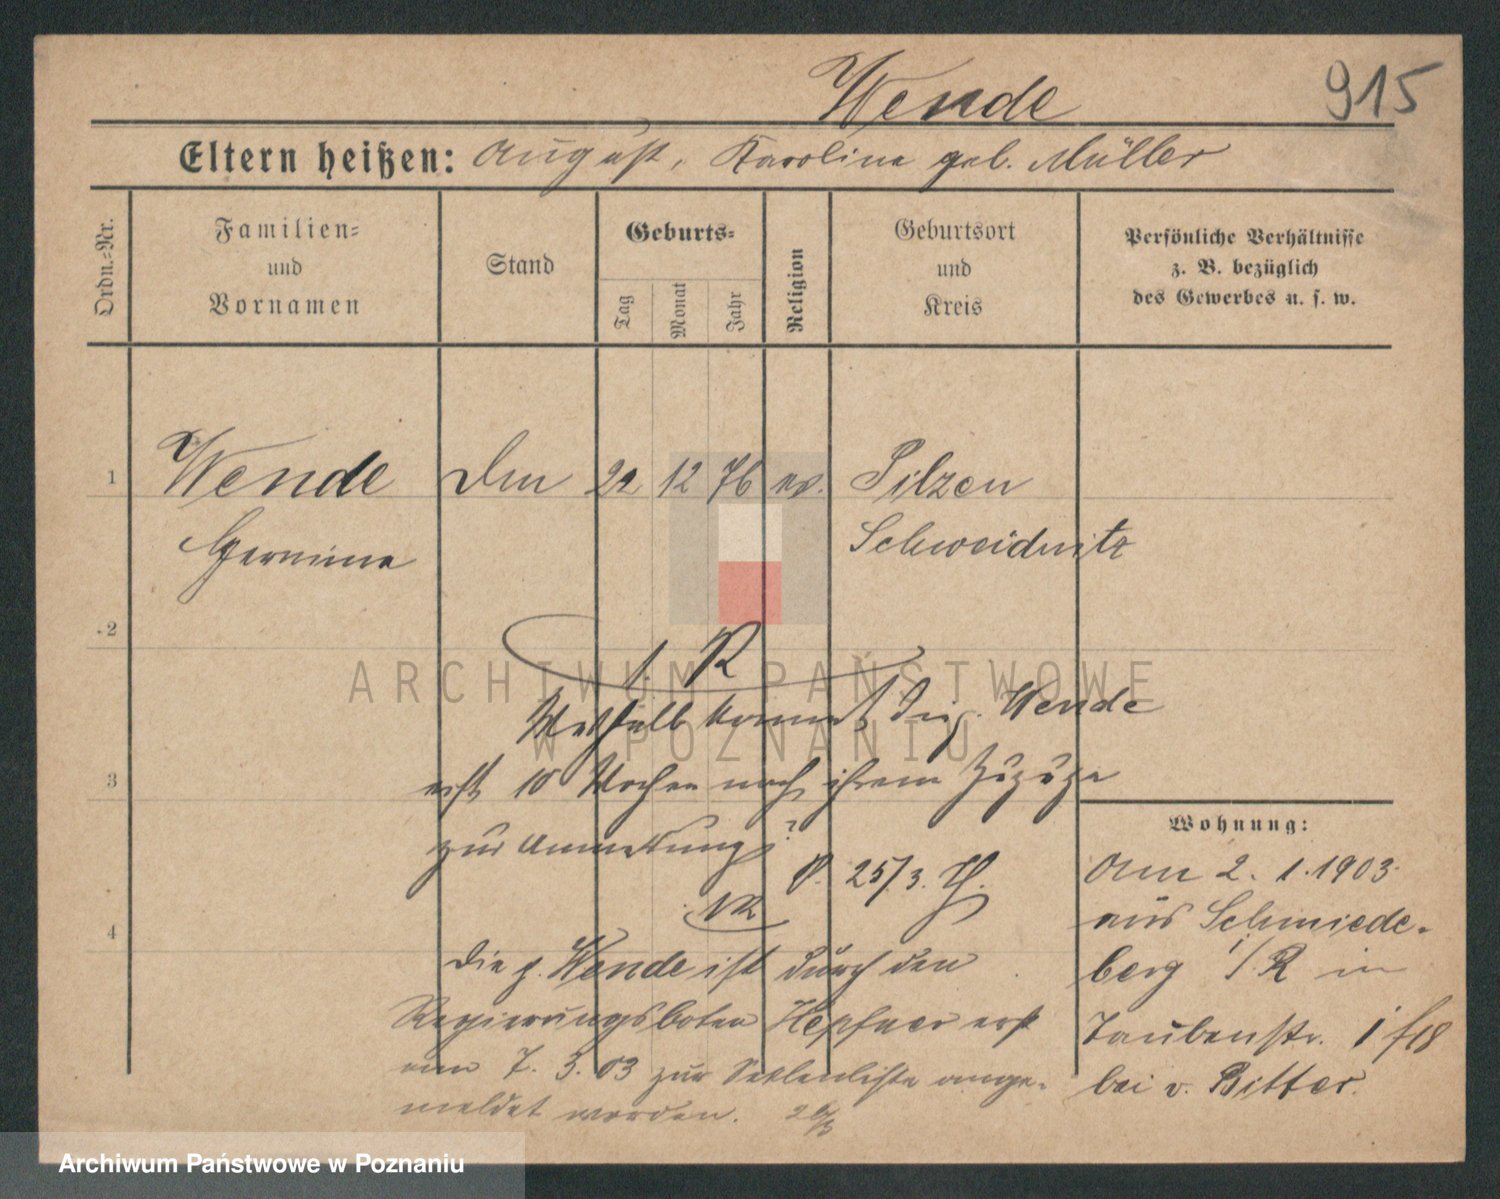 Wende
915
Eltern heißen: August, Karoline geb. Müller
Ordn.=Nr.
Familien=
und
Vornamen
Stand
Geburts=
Tag
Monat
Jahr
Religion
Geburtsort
und
Kreis
Persönliche Verhältnisse
z. B. bezüglich
des Gewerbes u. s. w.
1
Wende 12 76 ev. Pilzen
Schweidnitz
2
R
ARCHIWUM PAŃSTWOWE
W POZNANIU
Weshalb kommt die p. Wende
erst 10 Wochen nach ihrem Zuzuge
3
zur Anmeldung?
25/3.
4
Die p. Wende ist durch den
Regierungsboten Hepfner erst
am 7. 3. 03 zur Seelenliste ange-
meldet worden.
Wohnung:
Am 2. 1. 1903
aus Schmiede-
berg i/R in
Taubenstr. 1
bei v. Bitter.
Archiwum Państwowe w Poznaniu